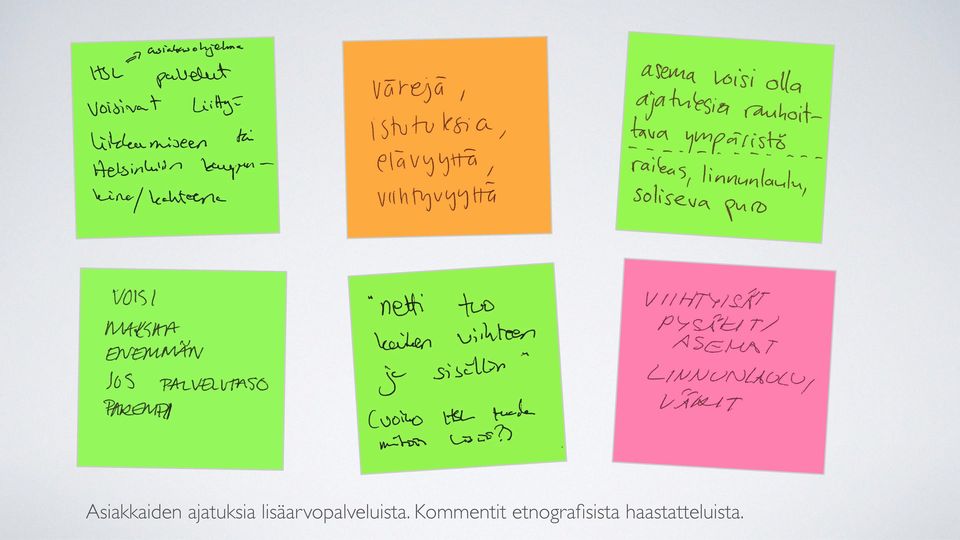 HSL → asiakasohjelma
palvelut
voisivat liittyä
liikkumiseen tai
Helsinkiin kaupun-
kina/kohteena
värejä,
istutuksia,
elävyyttä,
viihtyvyyttä
asema voisi olla
ajatuksia rauhoit-
tava ympäristö
raikas, linnunlaulu,
soliseva puro
VOISI
MAKSAA
ENEMMÄN
JOS PALVELUTASO
PAREMPI
"netti tuo
kaiken viihteen
ja sisällön"
(voiko HSL tuoda
mitään lisää?)
VIIHTYISÄT
PYSÄKIT/
ASEMAT
LINNUNLAULU,
VÄRIT
Asiakkaiden ajatuksia lisäarvopalveluista. Kommentit etnografisista haastatteluista.